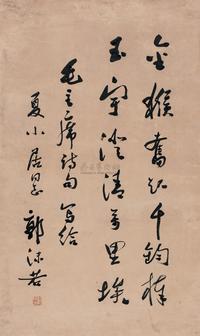 金猴奋起千钧棒
玉宇澄清万里埃
毛主席诗句写给
夏小居同志 郭沫若